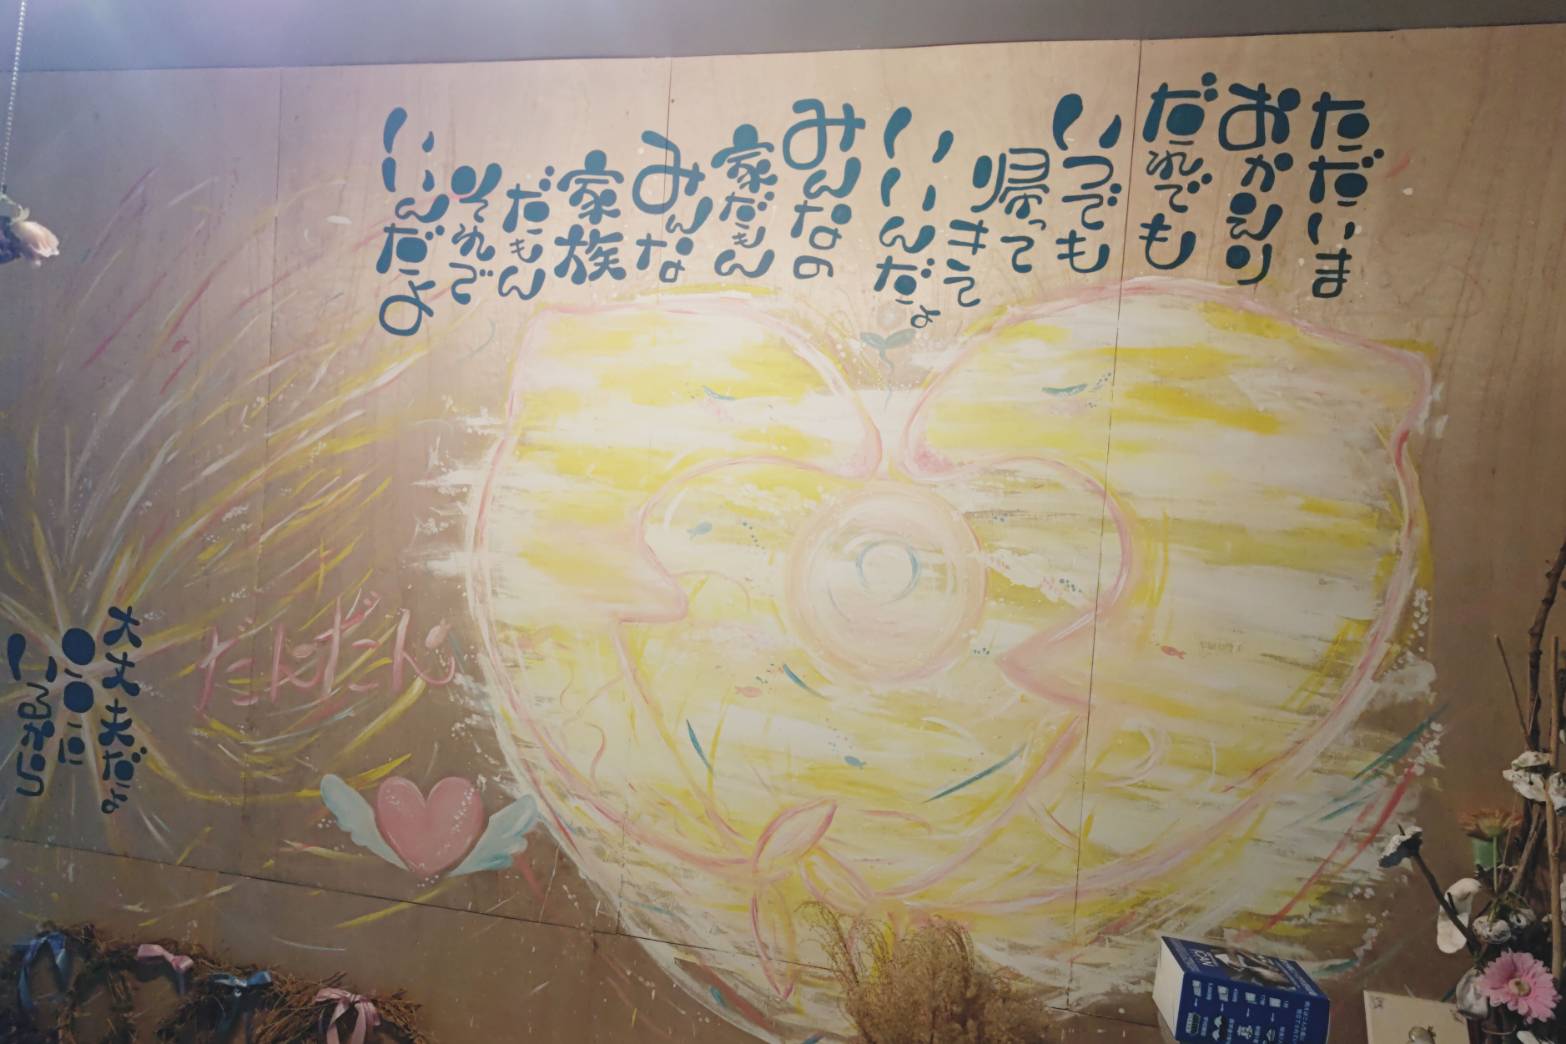 ただいま
おかえり
だれでも
いつでも
帰って
きて
いいんだよ
みんなの
家だもん
みんな
家族
だもん
それで
いいんだよ
だんだん
大丈夫だよ